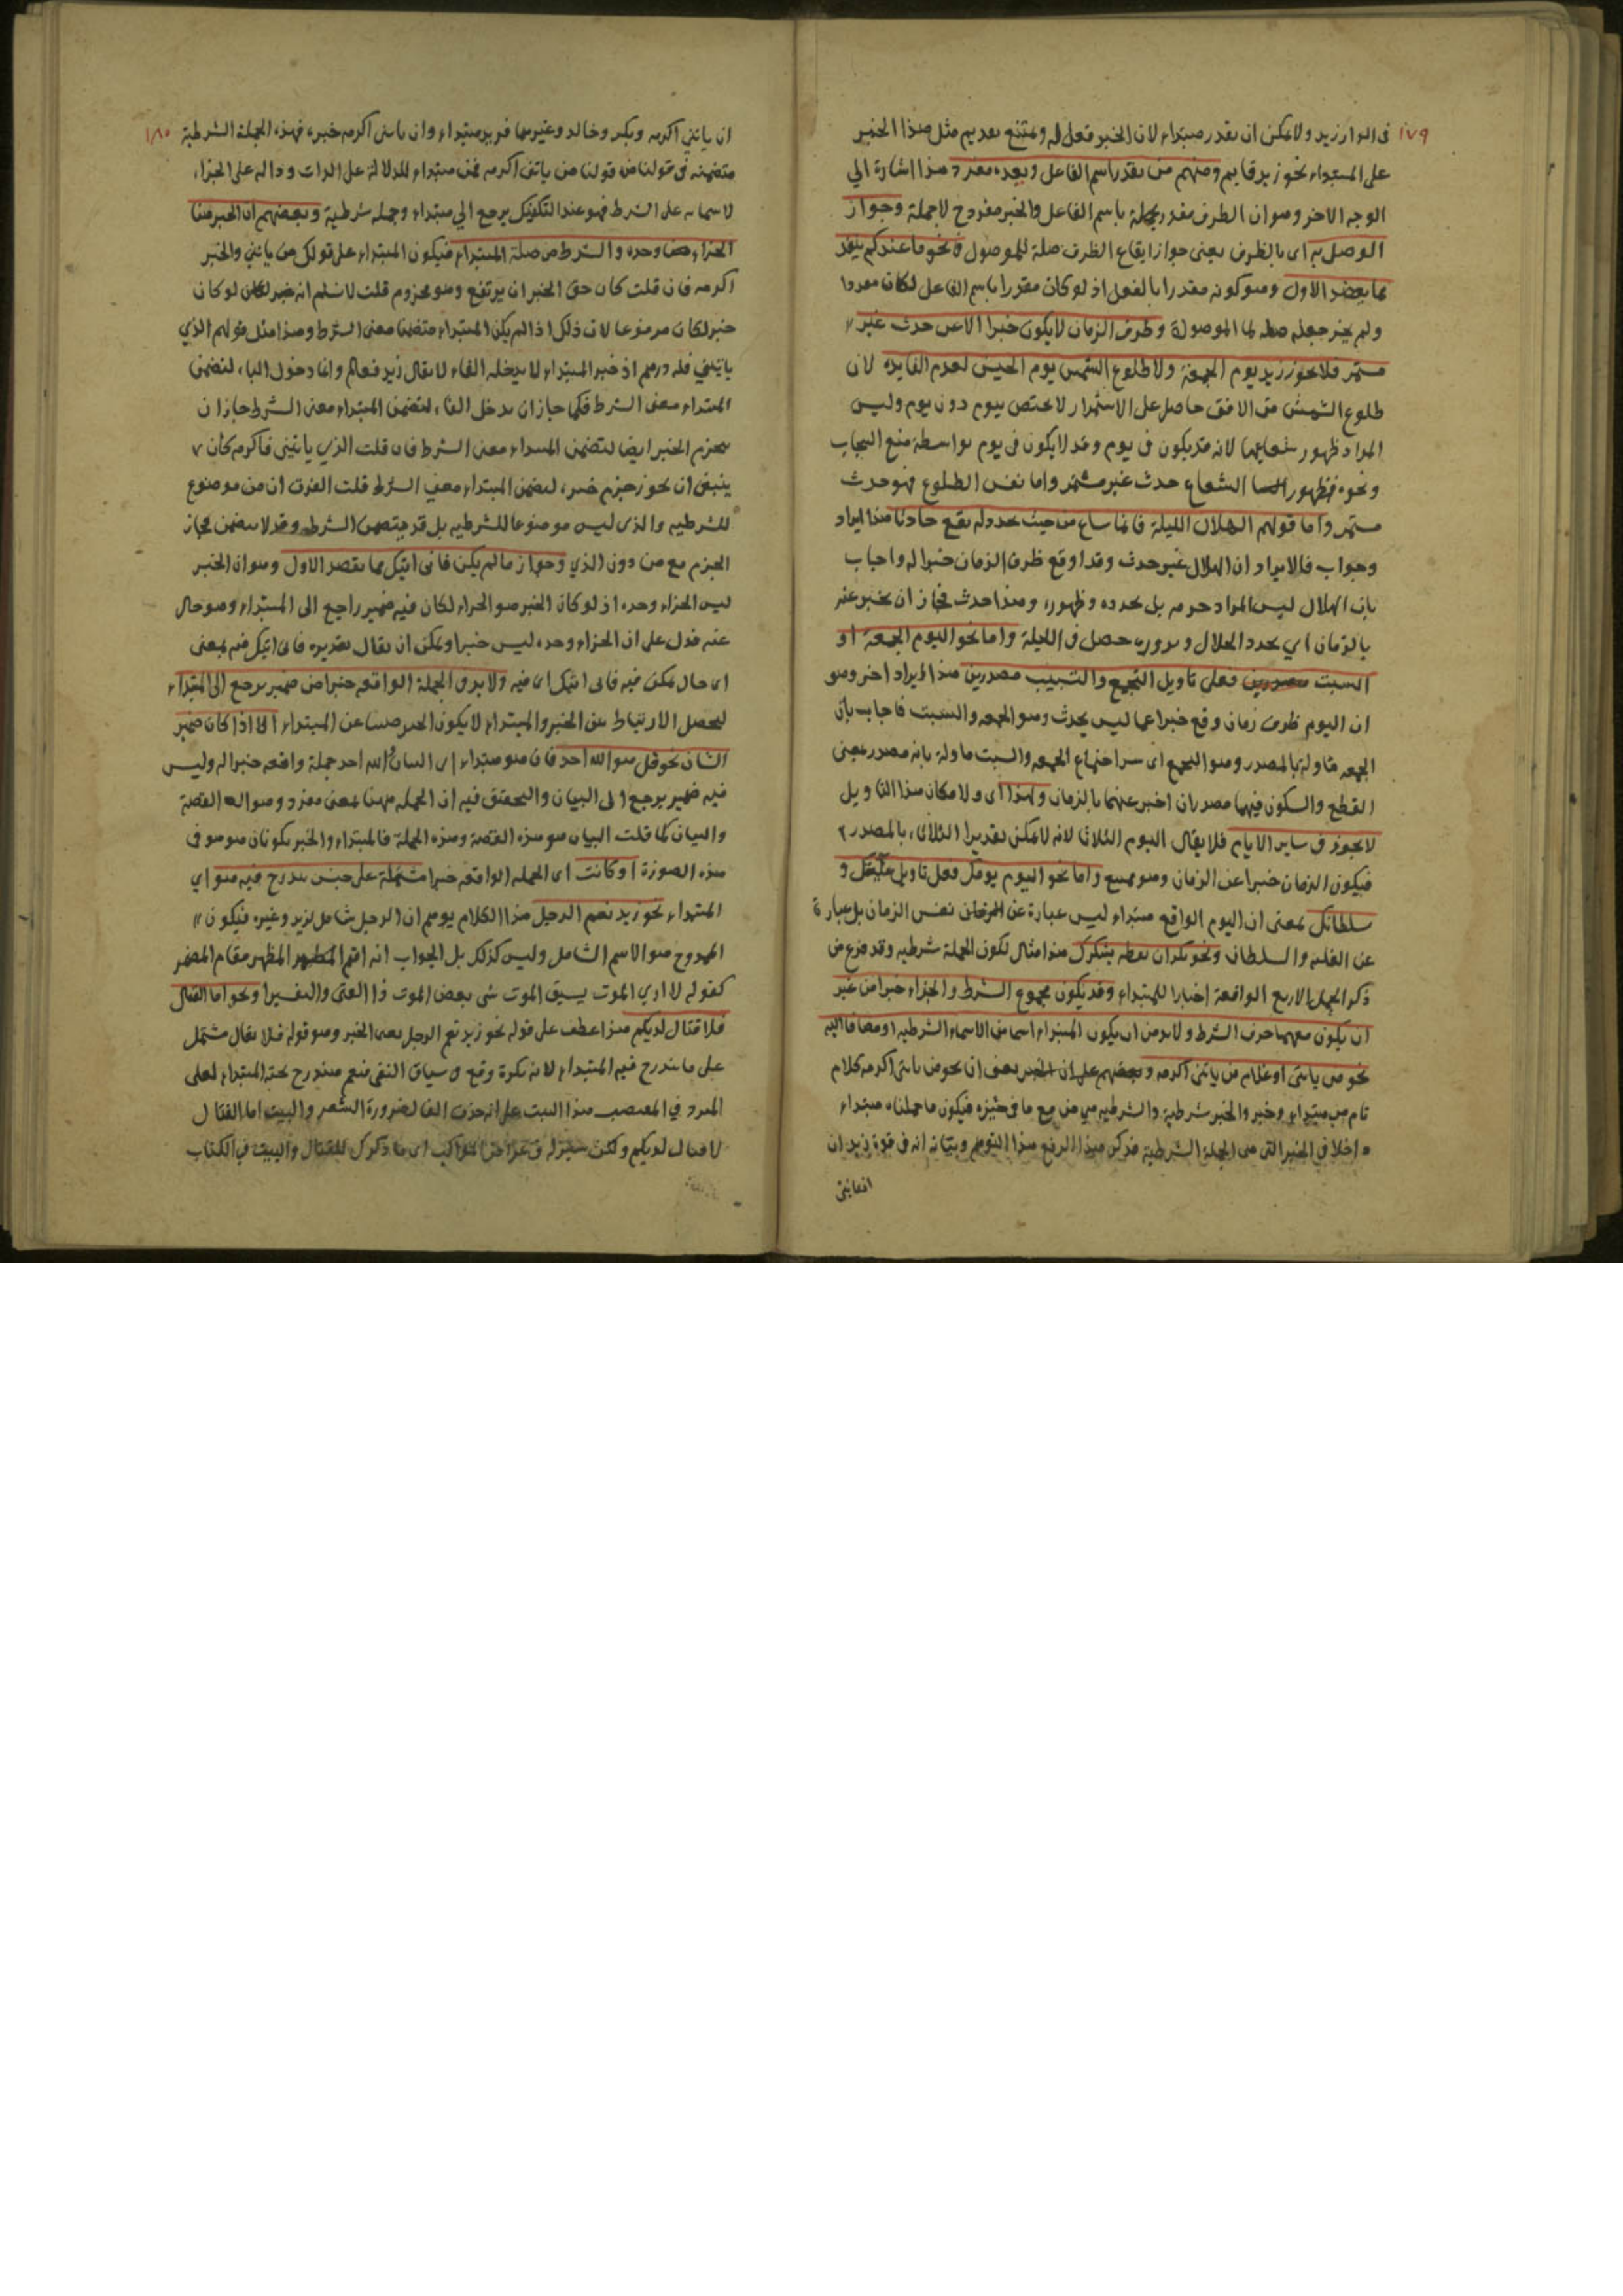 ١٧٩
فى الدار زيد ولا يمكن ان يقدر مبتداء لان الخبر فعل له ويمتنع تقديم مثل هذا الخبر
على المبتداء نحو زيد قايم ومنهم من يقدر اسم الفاعل وبعده مفرد هذا اشارة الي
الوجه الاخر وهو ان الظرف مقدر بجملة باسم الفاعل والخبر مفرد ح لا جملة وجواز
الوصل به اى بالظرف يعنى جواز ايقاع الظرف صلة للموصول نحو ما عندكم ينفد
مما يعضد الاول وهو كونه مقدرا بالفعل اذ لو كان مقدرا باسم الفاعل لكان مفردا
ولم يجز جعله صلة لما الموصولة وظرف الزمان لا يكون خبرا الا عن حدث غير
مستمر فلا يجوز زيد يوم الجمعة ولا طلوع الشمس يوم الخميس لعدم الفايده لان
طلوع الشمس من الافق حاصل على الاستمرار لا يختص بيوم دون يوم وليس
المراد ظهور شعاعها لانه قد يكون فى يوم وقد لا يكون فى يوم بواسطة منع السحاب
ونحوه فظهور الشعاع حدث غير مستمر واما نفس الطلوع فهو حدث
مستمر واما قولهم الهلال الليلة فانما ساغ من حيث تجدده يقع حادثا هذا ايراد
وجواب فالايراد ان الهلال غير حدث وقد اوقع ظرف الزمان خبرا له واجاب
بان الهلال ليس المراد جرمه بل تجدده وظهوره وهذا حدث فجاز ان يخبر عنه
بالزمان اي تجدد الهلال وبروزه حصل فى الليلة واما نحو اليوم الجمعة او
السبت فعلى تاويل التجمع والتسبيب مصدرين هذا ايراد اخر وهو
ان اليوم ظرف زمان وقع خبرا عما ليس بحدث وهو الجمعه والسبت فاجاب بان
الجمعه ماولة بالمصدر وهو التجمع اى اجتماع الجمعه والسبت ماولة بانه مصدر بمعنى
القطع والسكون فيهما مصدران اخبر عنهما بالزمان ولهذا اى ولامكان هذا التاويل
لا يجوز فى ساير الايام فلا يقال اليوم الثلاثا لانه لا يمكن تقدير الثلاثاء بالمصدر
فيكون الزمان خبرا عن الزمان وهو ممتنع واما نحو اليوم يومك فعلى تاويل و
سلطانك بمعنى ان اليوم الواقع مبتداء ليس عبارة عن نفس الزمان بل عبارة
عن الغلبه والسلطان ونحو بكر ان تعطه يشكرك هذا مثال لكون الجملة شرطيه وقد فرغ من
ذكر الجمل الاربع الواقعة اخبارا للمبتداء وقد يكون مجموع الشرط والجزاء خبرا من غير
ان يكون معهما حرف الشرط ولا بد من ان يكون المبتداء اسما من الاسماء الشرطيه او مضافا اليه
نحو من ياتنى او غلام من ياتنى اكرمه وبعضهم على ان الخبر يعنى ان نحو من ياتنى اكرمه كلام
تام من مبتداء وخبر والخبر شرطية والشرطيه هي من مع ما فى حيزه فيكون ما جعلناه مبتداء
داخلا فى الخبر التى هى الجملة الشرطية فذكر هذا الرفع هذا التوهم وبيانه انه فى قوة زيد ان
١٨٠
ان ياتني اكرمه وبكر وخالد وغيرهما فزيد مبتداء وان ياتنى اكرمه خبره فهذه الجملة الشرطية
متضمنه فى قولنا من ياتنى اكرمه فمن مبتداء للدلالة على الذات ودالة على الجزاء
على الشرط فهو عند التفكيك يرجع الي مبتداء وجملة شرطية وبعضهم ان الخبر هنا
الجزاء وحده والشرط من صلة المبتداء فيكون المبتداء على قولك من ياتني والخبر
اكرمه فان قلت كان حق الخبر ان يرتفع وهو مجزوم قلت لا نسلم انه لو كان
خبرا لكان مرفوعا لان ذلك اذا لم يكن المبتداء متضمنا معنى الشرط وهذا مثل قولهم الذي
ياتيني فله درهم اذ خبر المبتداء لا يدخله الفاء لا يقال زيد فعالم وانما دخول الفاء لتضمن
المبتداء معنى الشرط فكما جاز ان يدخل الفاء لتضمن المبتداء معنى الشرط جاز ان
ينجزم الخبر ايضا لتضمن المبتداء معنى الشرط فان قلت الذي ياتينى فاكرمه كان
ينبغى ان نجوز جزم خبره لتضمن المبتداء معنى الشرط قلت الفرق ان من موضوع
للشرطيه والذى ليس موضوعا للشرطيه بل قد يتضمن الشرط وقد لا يتضمن فجاز
الجزم مع من دون الذي وجواز ما لم يكن فانى اتيك مما يعضد الاول وهو ان الخبر
ليس الجزاء وحده اذ لو كان الخبر هو الجزاء لكان فيه ضمير راجع الى المبتداء وهو خال
عنه فدل على ان الجزاء وحده ليس خبرا ويمكن ان يقال تقديره فانى اتيك فيه بمعنى
اى حال يمكن فيه فانى اتيك اى فيه ولا بد فى الجملة الواقعه خبرا من ضمير يرجع الى المبتداء
ليحصل الارتباط بين الخبر والمبتداء لا يكون الخبر اجنبيا عن المبتداء الا اذا كان ضمير
الشان نحو قل هو الله احد فان هو مبتداء اى الشان والله احد جملة واقعه خبرا له وليس
فيه ضمير يرجع الى البيان والتحقيق فيه ان الجمله ههنا بمعنى مفرد وهو القصة
والبيان كما قلت البيان هو هذه القصة وهذه الجملة فالمبتداء والخبر يكونان هو هو فى
هذه الصورة او كانت اى الجمله الواقعه خبرا مشتملة على جنس يندرج فيه هو اي
المبتداء نحو زيد نعم الرجل هذا الكلام يوهم ان الرجل شامل لزيد وغيره فيكون
الممدوح هو الاسم الشامل وليس كذلك بل الجواب انه اقيم المظهر مقام المضمر
كقوله لا ارى الموت يسبق الموت شى بعض الموت ذا الغنى والفقيرا ونحو اما القتال
فلا قتال لديكم هذا عطف على قوله نحو زيد نعم الرجل يعنى الخبر وهو قوله فلا قتال مشتمل
على ما يندرج فيه المبتداء لانه نكرة وقع فى سياق النفى فنعم مندرج تحته المبتداء
المبرد في المقتضب هذا البيت على انه حذف الفا لضرورة الشعر والبيت اما القتال
لا قتال لديكم ولكن